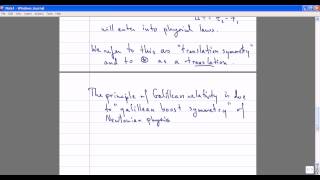 Note1 - Windows Journal
will enter into physical laws.
We refer to this as "translation symmetry"
and to ⊛ as a translation
The principle of Galilean relativity is due
to "galilean boost symmetry" of
Newtonian physics